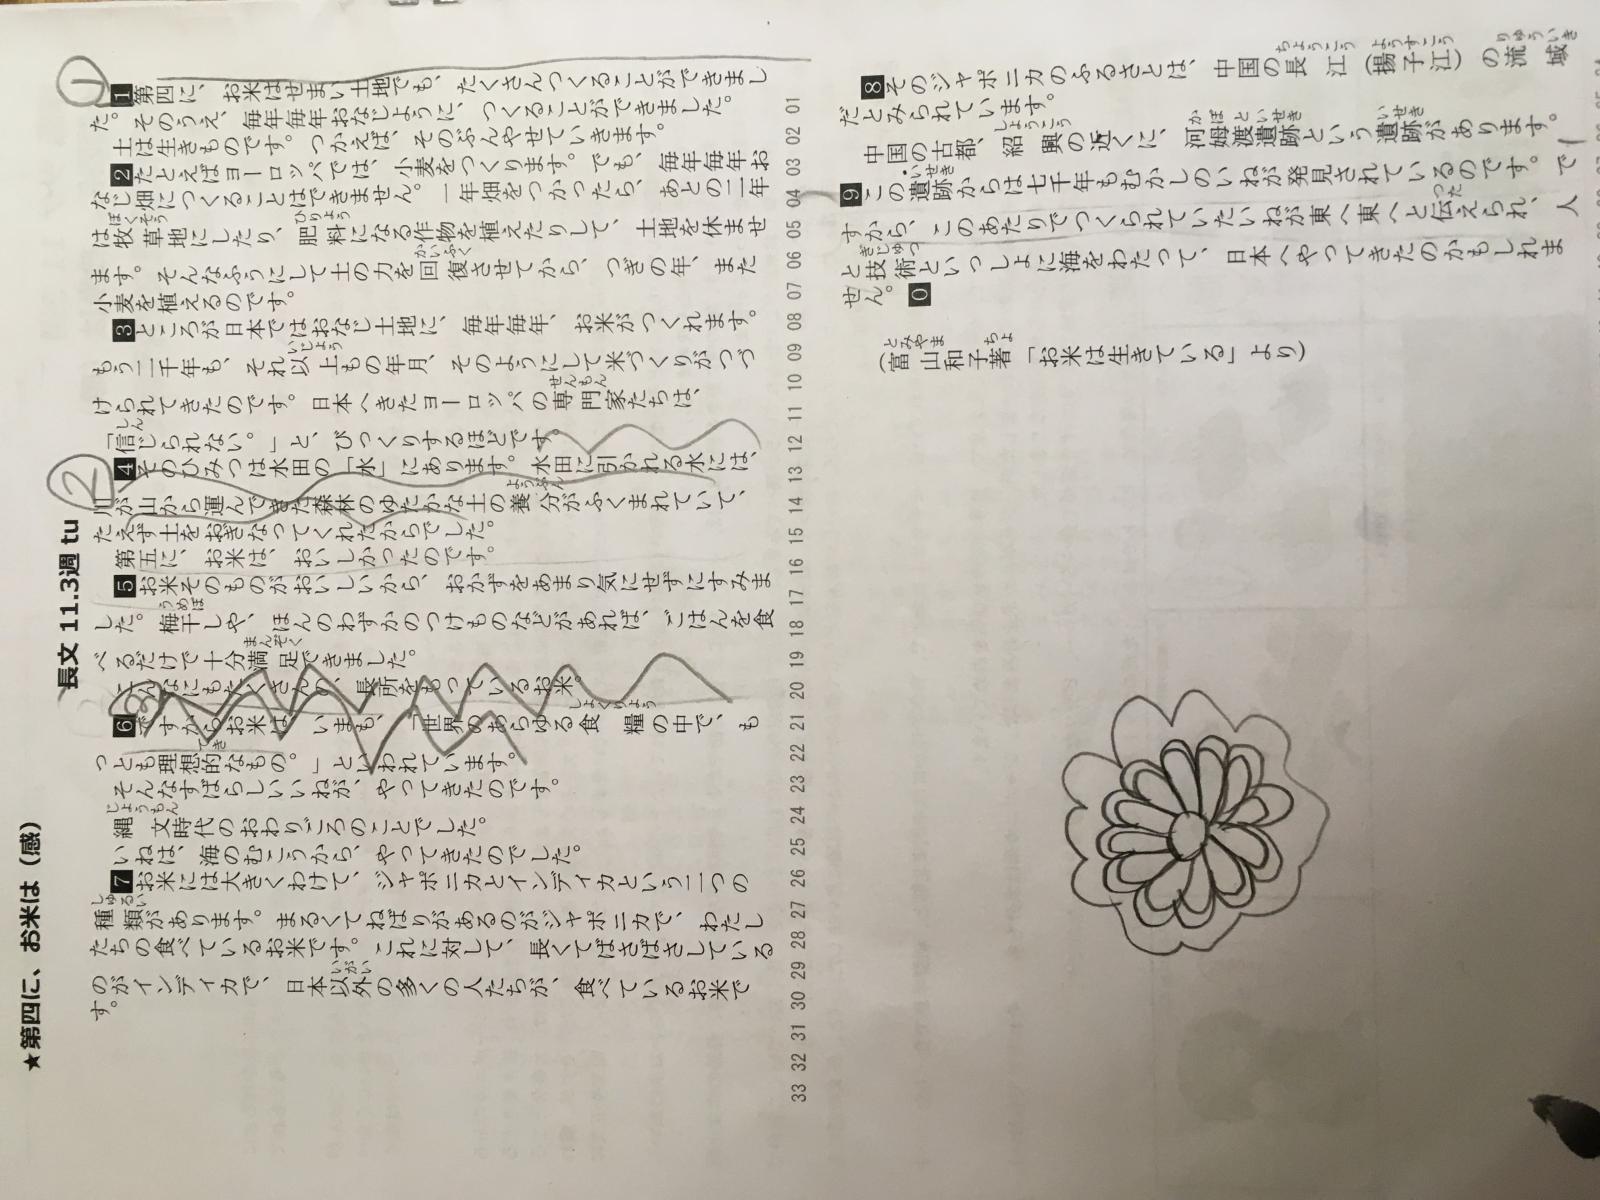 ★第四に、お米は（感）
長文 11.3週 tu
①
1第四に、お米はせまい土地でも、たくさんつくることができまし
た。そのうえ、毎年毎年おなじように、つくることができました。
土は生きものです。つかえば、そのぶんやせていきます。
2たとえばヨーロッパでは、小麦をつくります。でも、毎年毎年お
なじ畑につくることはできません。一年畑をつかったら、あとの二年
は牧草地にしたり、肥料になる作物を植えたりして、土地を休ませ
ます。そんなふうにして土の力を回復させてから、つぎの年、また
小麦を植えるのです。
3ところが日本ではおなじ土地に、毎年毎年、お米がつくれます。
もう二千年も、それ以上もの年月、そのようにして米づくりがつづ
けられてきたのです。日本へきたヨーロッパの専門家たちは、
「信じられない。」と、びっくりするほどです。
②
4そのひみつは水田の「水」にあります。水田に引かれる水には、
川が山から運んできた森林のゆたかな土の養分がふくまれていて、
たえず土をおぎなってくれたからでした。
第五に、お米は、おいしかったのです。
5お米そのものがおいしいから、おかずをあまり気にせずにすみま
した。梅干しや、ほんのわずかのつけものなどがあれば、ごはんを食
べるだけで十分満足できました。
こんなにもたくさんの、長所をもっているお米。
③
6ですからお米は、いまも、「世界のあらゆる食糧の中で、も
っとも理想的なもの。」といわれています。
そんなすばらしいいねが、やってきたのです。
縄文時代のおわりごろのことでした。
いねは、海のむこうから、やってきたのでした。
7お米には大きくわけて、ジャポニカとインディカという二つの
種類があります。まるくてねばりがあるのがジャポニカで、わたし
たちの食べているお米です。これに対して、長くてぱさぱさしている
のがインディカで、日本以外の多くの人たちが、食べているお米で
す。
01 02 03 04 05 06 07 08 09 10 11 12 13 14 15 16 17 18 19 20 21 22 23 24 25 26 27 28 29 30 31 32 33
8そのジャポニカのふるさとは、中国の長江（揚子江）の流域
だとみられています。
中国の古都、紹興の近くに、河姆渡遺跡という遺跡があります。
9この遺跡からは七千年もむかしのいねが発見されているのです。で
すから、このあたりでつくられていたいねが東へ東へと伝えられ、人
と技術といっしょに海をわたって、日本へやってきたのかもしれま
せん。0
（富山和子著「お米は生きている」より）